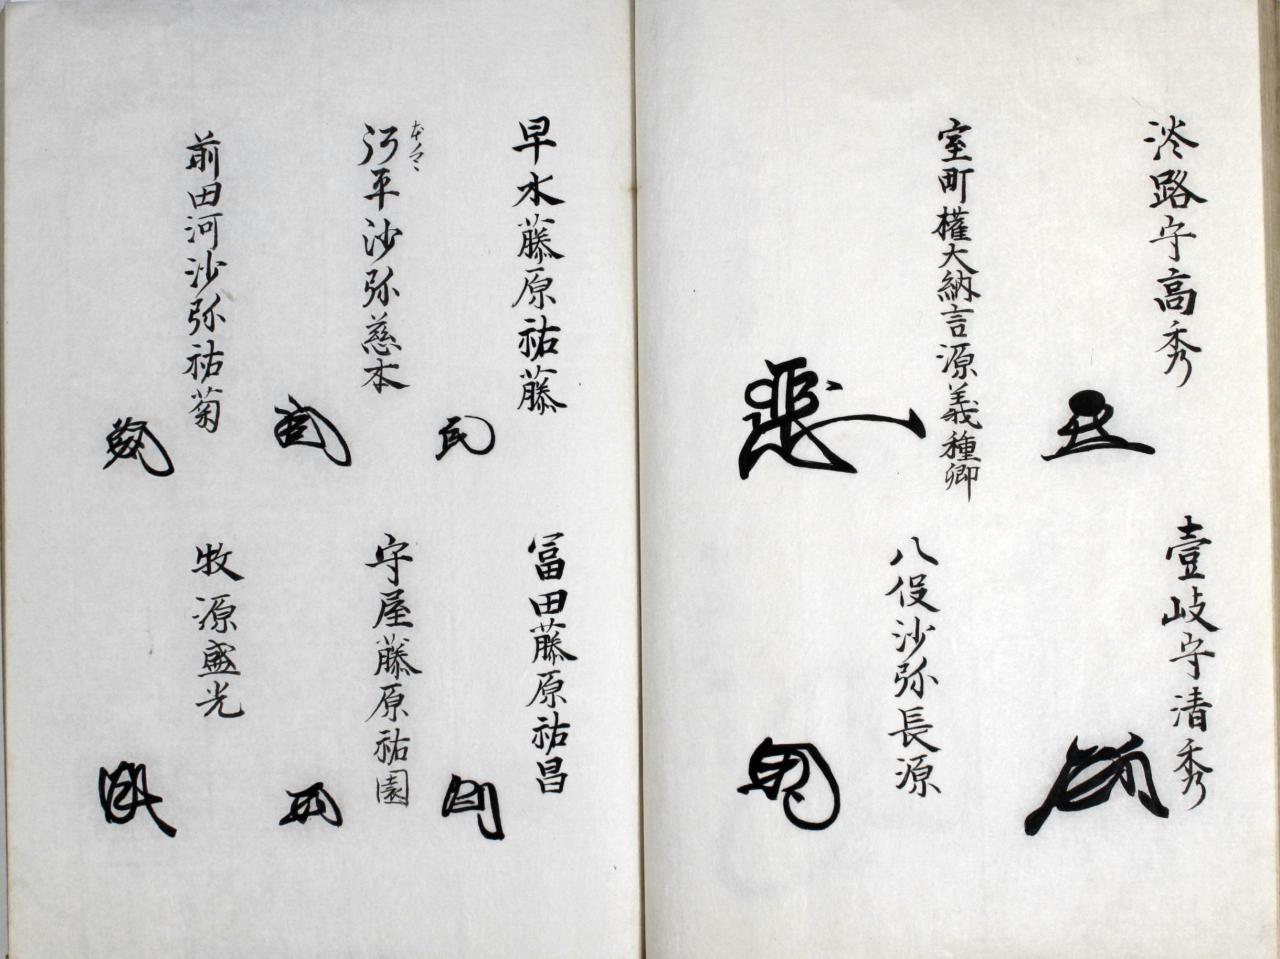 淡路守高秀
壹岐守清秀
室町權大納言源義種卿
八役沙弥長源
早水藤原祐藤
冨田藤原祐昌
平沙弥慈本
守屋藤原祐園
前田河沙弥祐菊
牧源盛光